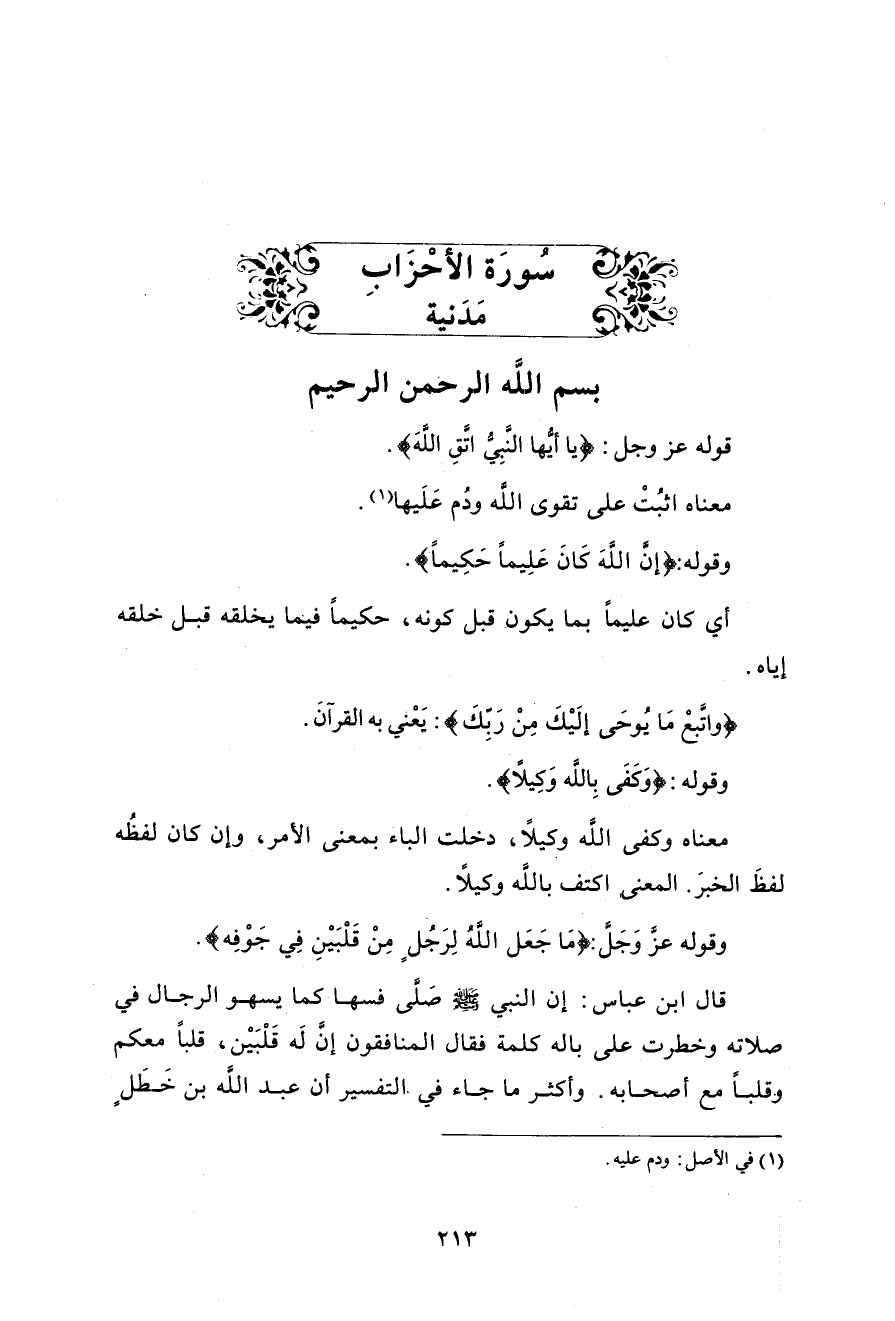 سُورَة الأَحْزَابِ
مَدَنية
بسم اللَّه الرحمن الرحيم
قوله عز وجل: ﴿يا أَيُّها النَّبِيُّ اتَّقِ اللَّهَ﴾.
معناه اثبُتْ على تقوى اللَّه ودُم عَلَيها(١).
وقوله:﴿إنَّ اللَّهَ كَانَ عَلِيماً حَكِيماً﴾.
أي كان عليماً بما يكون قبل كونه، حكيماً فيما يخلقه قبل خلقه
إياه.
﴿واتَّبعْ مَا يُوحَى إلَيْكَ مِنْ رَبِّكَ﴾: يَعْني به القرآنَ.
وقوله: ﴿وَكَفَى بِاللَّه وَكِيلًا﴾.
معناه وكفى اللَّه وكيلًا، دخلت الباء بمعنى الأمر، وإن كان لفظُه
لفظَ الخبرَ. المعنى اكتف باللَّه وكيلًا.
وقوله عزَّ وَجَلَّ:﴿مَا جَعَل اللَّهُ لِرَجُلٍ مِنْ قَلْبَيْنِ فِي جَوْفِه﴾.
قال ابن عباس: إن النبي ﷺ صَلَّى فسها كما يسهو الرجال في
صلاته وخطرت على باله كلمة فقال المنافقون إنَّ لَه قَلْبَيْن، قلباً معكم
وقلباً مع أصحابه. وأكثر ما جاء في التفسير أن عبد اللَّه بن خَطَلٍ
(١) في الأصل: ودم عليه.
٢١٣